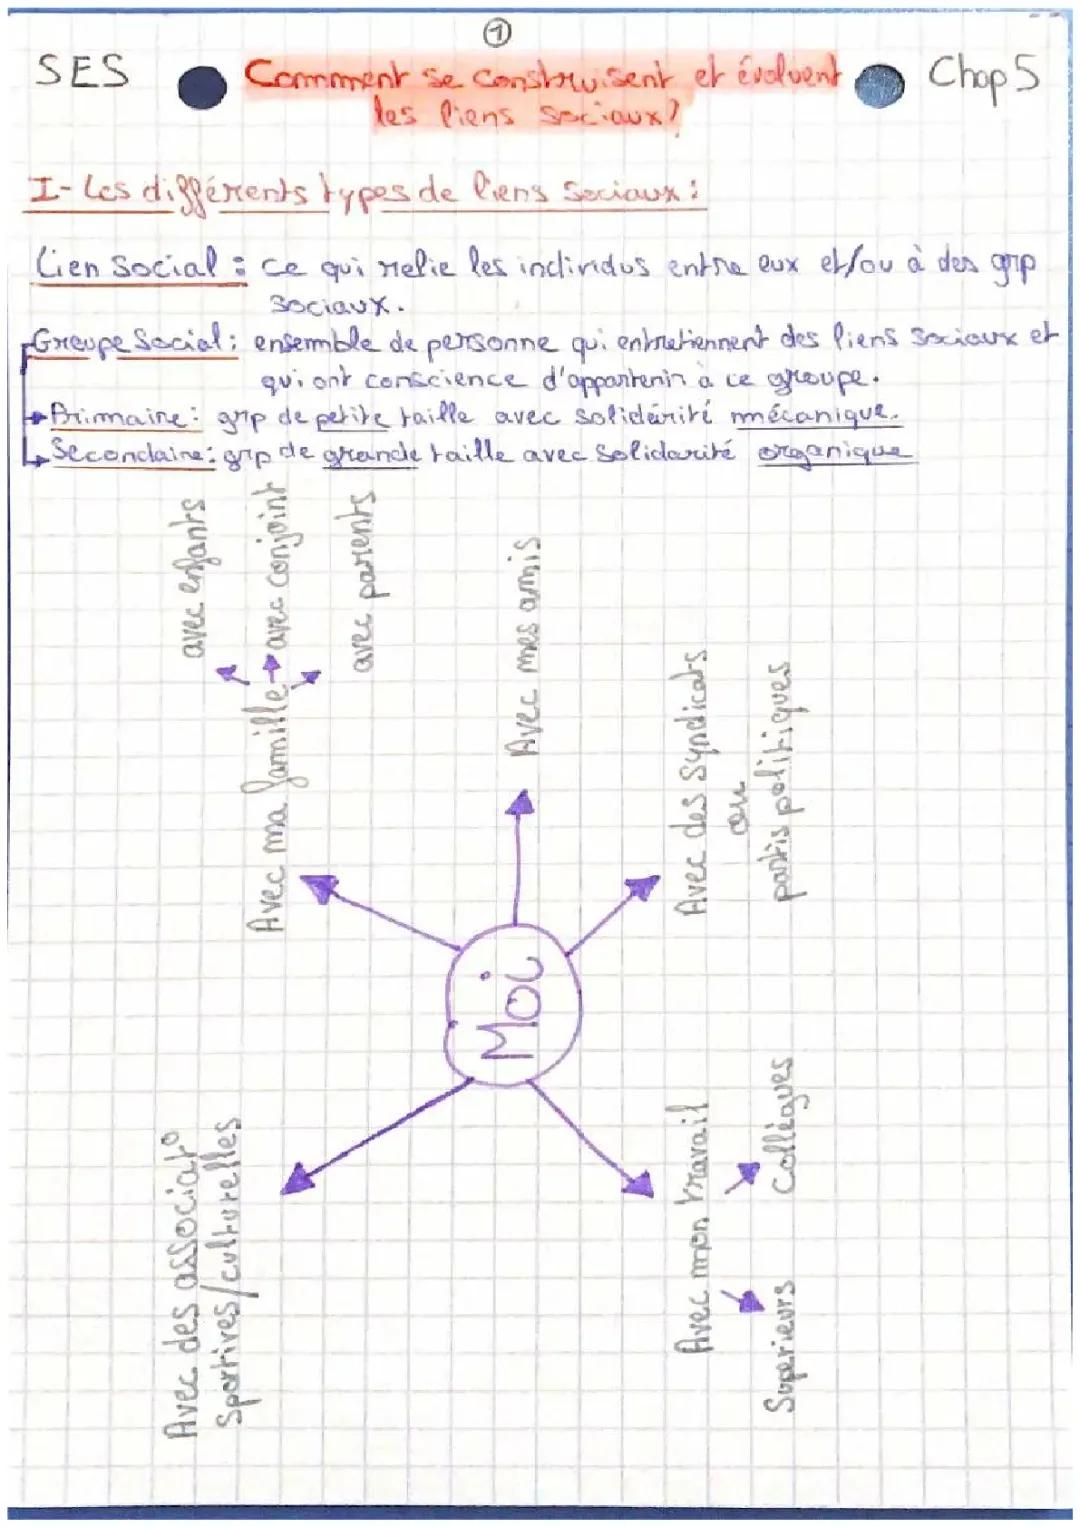 ①
SES
Comment se construisent et évoluent
les liens sociaux?
Chap 5
I- Les différents types de liens sociaux :
Lien Social : ce qui relie les individus entre eux et/ou à des grp
sociaux.
Groupe Social : ensemble de personne qui entretiennent des liens sociaux et
qui ont conscience d'appartenir à ce groupe.
Primaire : grp de petite taille avec solidérité mécanique.
Secondaire : grp de grande taille avec Solidarité organique
Avec des associat°
Sportives/culturelles
Avec ma famille
avec enfants
avec conjoint
avec parents
Moi
Avec mes amis
Avec mon travail
Superieurs
Collègues
Avec des Syndicats
ou
partis politiques